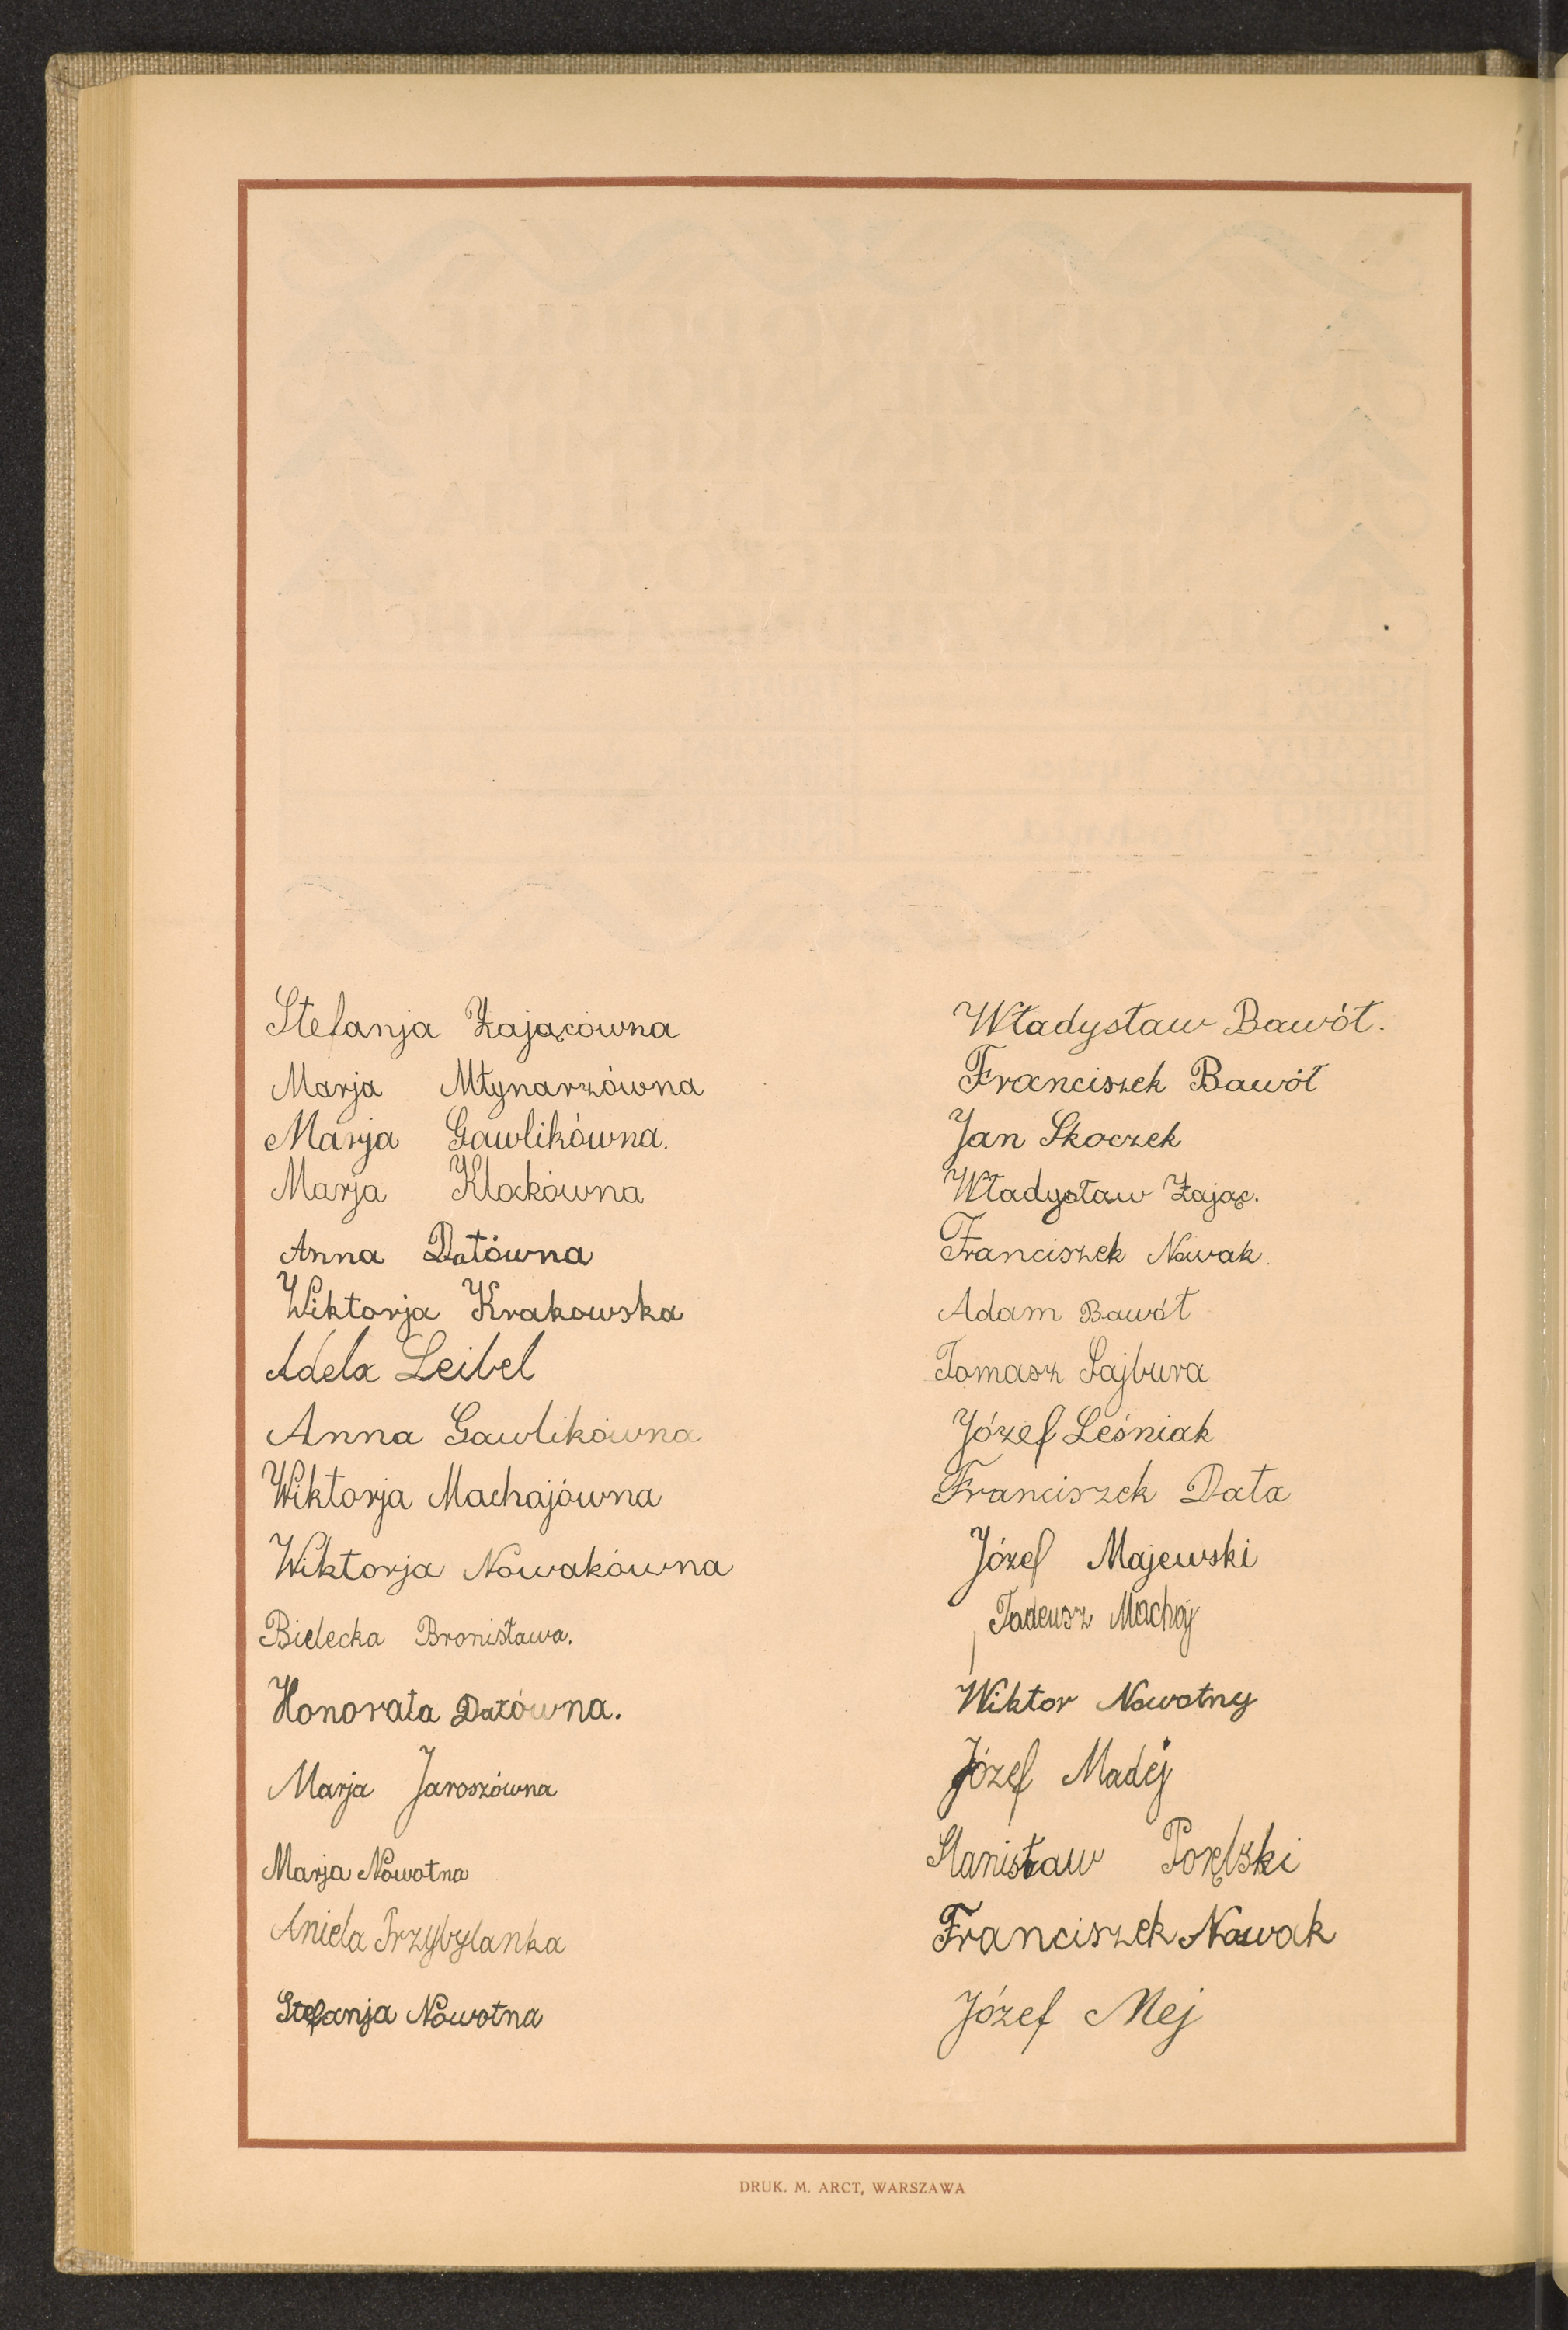 Stefanja Zającówna
Marja Młynarzówna
Marja Gawlikówna.
Marja Klockówna
Anna Datówna
Wiktorja Krakowska
Adela Leibel
Anna Gawlikówna
Wiktorja Machajówna
Wiktorja Nowakówna
Bielecka Bronisława.
Honorata Datówna.
Marja Jaroszówna
Marja Nowotna
Aniela Przybylanka
Stefanja Nowotna
Władysław Bawół.
Franciszek Bawół
Jan Skoczek
Władysław Zając.
Franciszek Nowak.
Adam Bawół
Tomasz Sajbura
Józef Leśniak
Franciszek Data
Józef Majewski
Tadeusz Machaj
Wiktor Nowotny
Józef Madej
Stanisław
Franciszek Nowak
Józef Mej
DRUK. M. ARCT, WARSZAWA